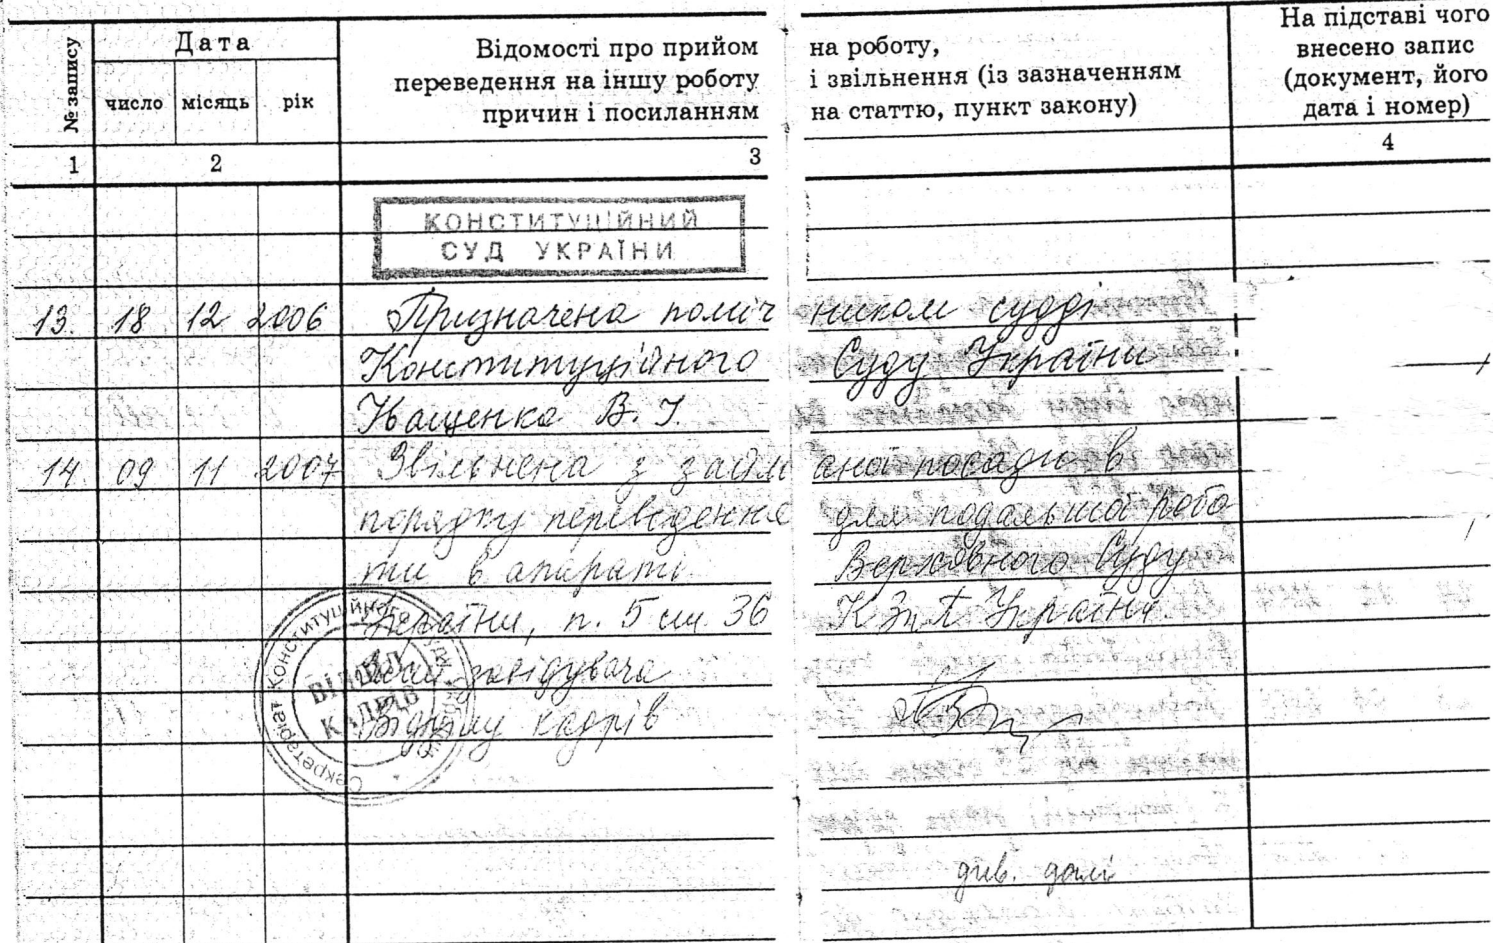 № запису
Дата
число місяць рік
Відомості про прийом на роботу,
переведення на іншу роботу і звільнення (із зазначенням
причин і посиланням на статтю, пункт закону)
На підставі чого
внесено запис
(документ, його
дата і номер)
1 2 3 4
КОНСТИТУЦІЙНИЙ
СУД УКРАЇНИ
13. 18 12 2006 Призначена помічником судді
Конституційного Суду України
Іващенка В. І.
14 09 11 2007 Звільнена з займаної посади в
порядку переведення для подальшої робо
ти в апараті Верховного Суду
України, п. 5 ст. 36 КЗпП України.
завідувача
відділу кадрів
Секретаріат Конституційного Суду України
ВІДДІЛ
КАДРІВ
див. далі